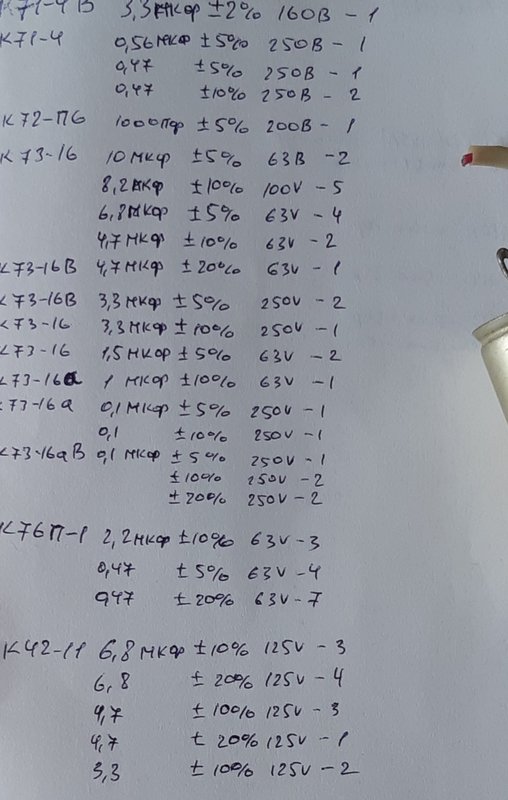 К71-4В 3,3мкф ±2% 160В - 1
К71-4 0,56мкф ±5% 250В - 1
0,47 ±5% 250В - 1
0,47 ±10% 250В - 2
К72-П6 1000пф ±5% 200В - 1
К73-16 10 мкф ±5% 63В - 2
8,2мкф ±10% 100V - 5
6,8мкф ±5% 63V - 4
4,7 мкф ±10% 63V - 2
К73-16В 4,7мкф ±20% 63V - 1
К73-16В 3,3мкф ±5% 250V - 2
К73-16 3,3мкф ±10% 250V - 1
К73-16 1,5мкф ±5% 63V - 2
К73-16а 1 мкф ±10% 63V - 1
К73-16а 0,1мкф ±5% 250V - 1
0,1 ±10% 250V - 1
К73-16аВ 0,1 мкф ±5% 250V - 1
±10% 250V - 2
±20% 250V - 2
К76П-1 2,2мкф ±10% 63V - 3
0,47 ±5% 63V - 4
0,47 ±20% 63V - 7
К42-11 6,8мкф ±10% 125V - 3
6,8 ±20% 125V - 4
4,7 ±10% 125V - 3
4,7 ±20% 125V - 1
3,3 ±10% 125V - 2